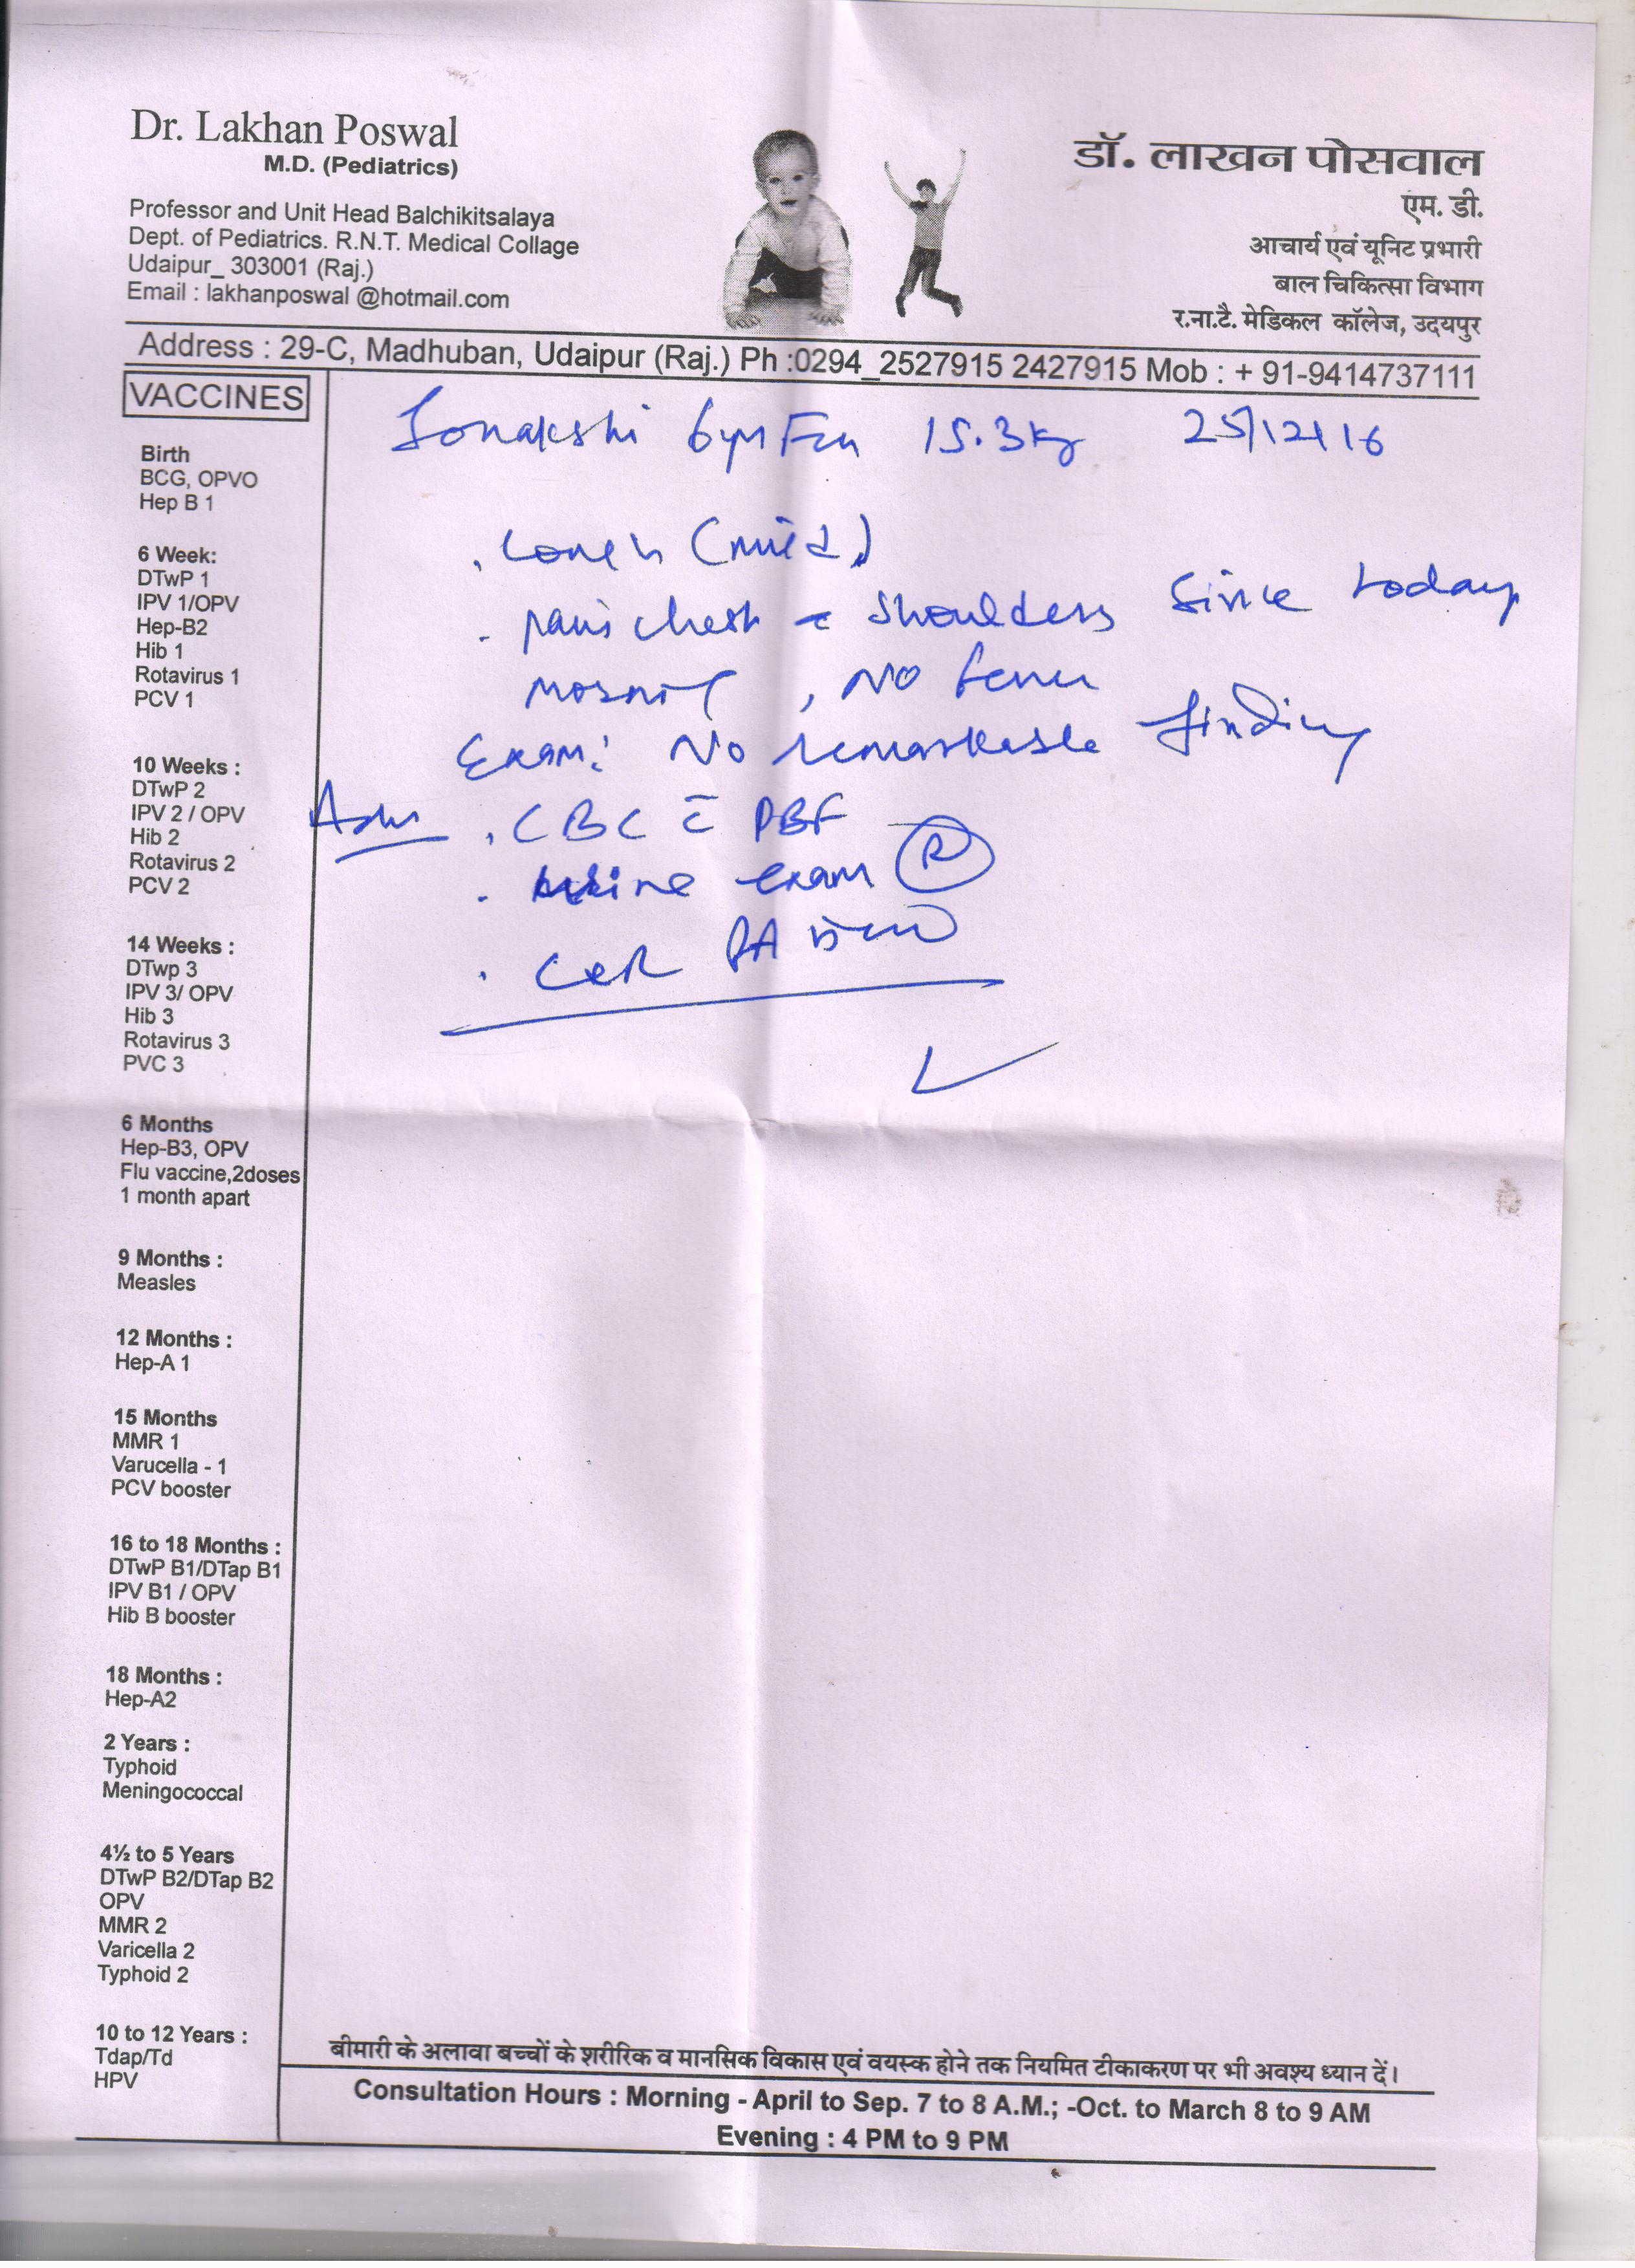 Dr. Lakhan Poswal
M.D. (Pediatrics)
Professor and Unit Head Balchikitsalaya
Dept. of Pediatrics. R.N.T. Medical Collage
Udaipur_ 303001 (Raj.)
Email : lakhanposwal @hotmail.com
डॉ. लाखन पोसवाल
एम. डी.
आचार्य एवं यूनिट प्रभारी
बाल चिकित्सा विभाग
र.ना.टै. मेडिकल कॉलेज, उदयपुर
Address : 29-C, Madhuban, Udaipur (Raj.) Ph :0294_2527915 2427915 Mob : + 91-9414737111
VACCINES
Birth
BCG, OPVO
Hep B 1
6 Week:
DTwP 1
IPV 1/OPV
Hep-B2
Hib 1
Rotavirus 1
PCV 1
10 Weeks :
DTwP 2
IPV 2 / OPV
Hib 2
Rotavirus 2
PCV 2
14 Weeks :
DTwp 3
IPV 3/ OPV
Hib 3
Rotavirus 3
PVC 3
6 Months
Hep-B3, OPV
Flu vaccine,2doses
1 month apart
9 Months :
Measles
12 Months :
Hep-A 1
15 Months
MMR 1
Varucella - 1
PCV booster
16 to 18 Months :
DTwP B1/DTap B1
IPV B1 / OPV
Hib B booster
18 Months :
Hep-A2
2 Years :
Typhoid
Meningococcal
4½ to 5 Years
DTwP B2/DTap B2
OPV
MMR 2
Varicella 2
Typhoid 2
10 to 12 Years :
Tdap/Td
HPV
Sonakshi 6yr 15.3kg 25/12/16
. Cough (mild)
. pain chest shoulders since today
morning , No fever
Exam: No remarkable finding
Adv . CBC c̄ PBF
. urine exam (R)
. CXR PA view
बीमारी के अलावा बच्चों के शरीरिक व मानसिक विकास एवं वयस्क होने तक नियमित टीकाकरण पर भी अवश्य ध्यान दें।
Consultation Hours : Morning - April to Sep. 7 to 8 A.M.; -Oct. to March 8 to 9 AM
Evening : 4 PM to 9 PM